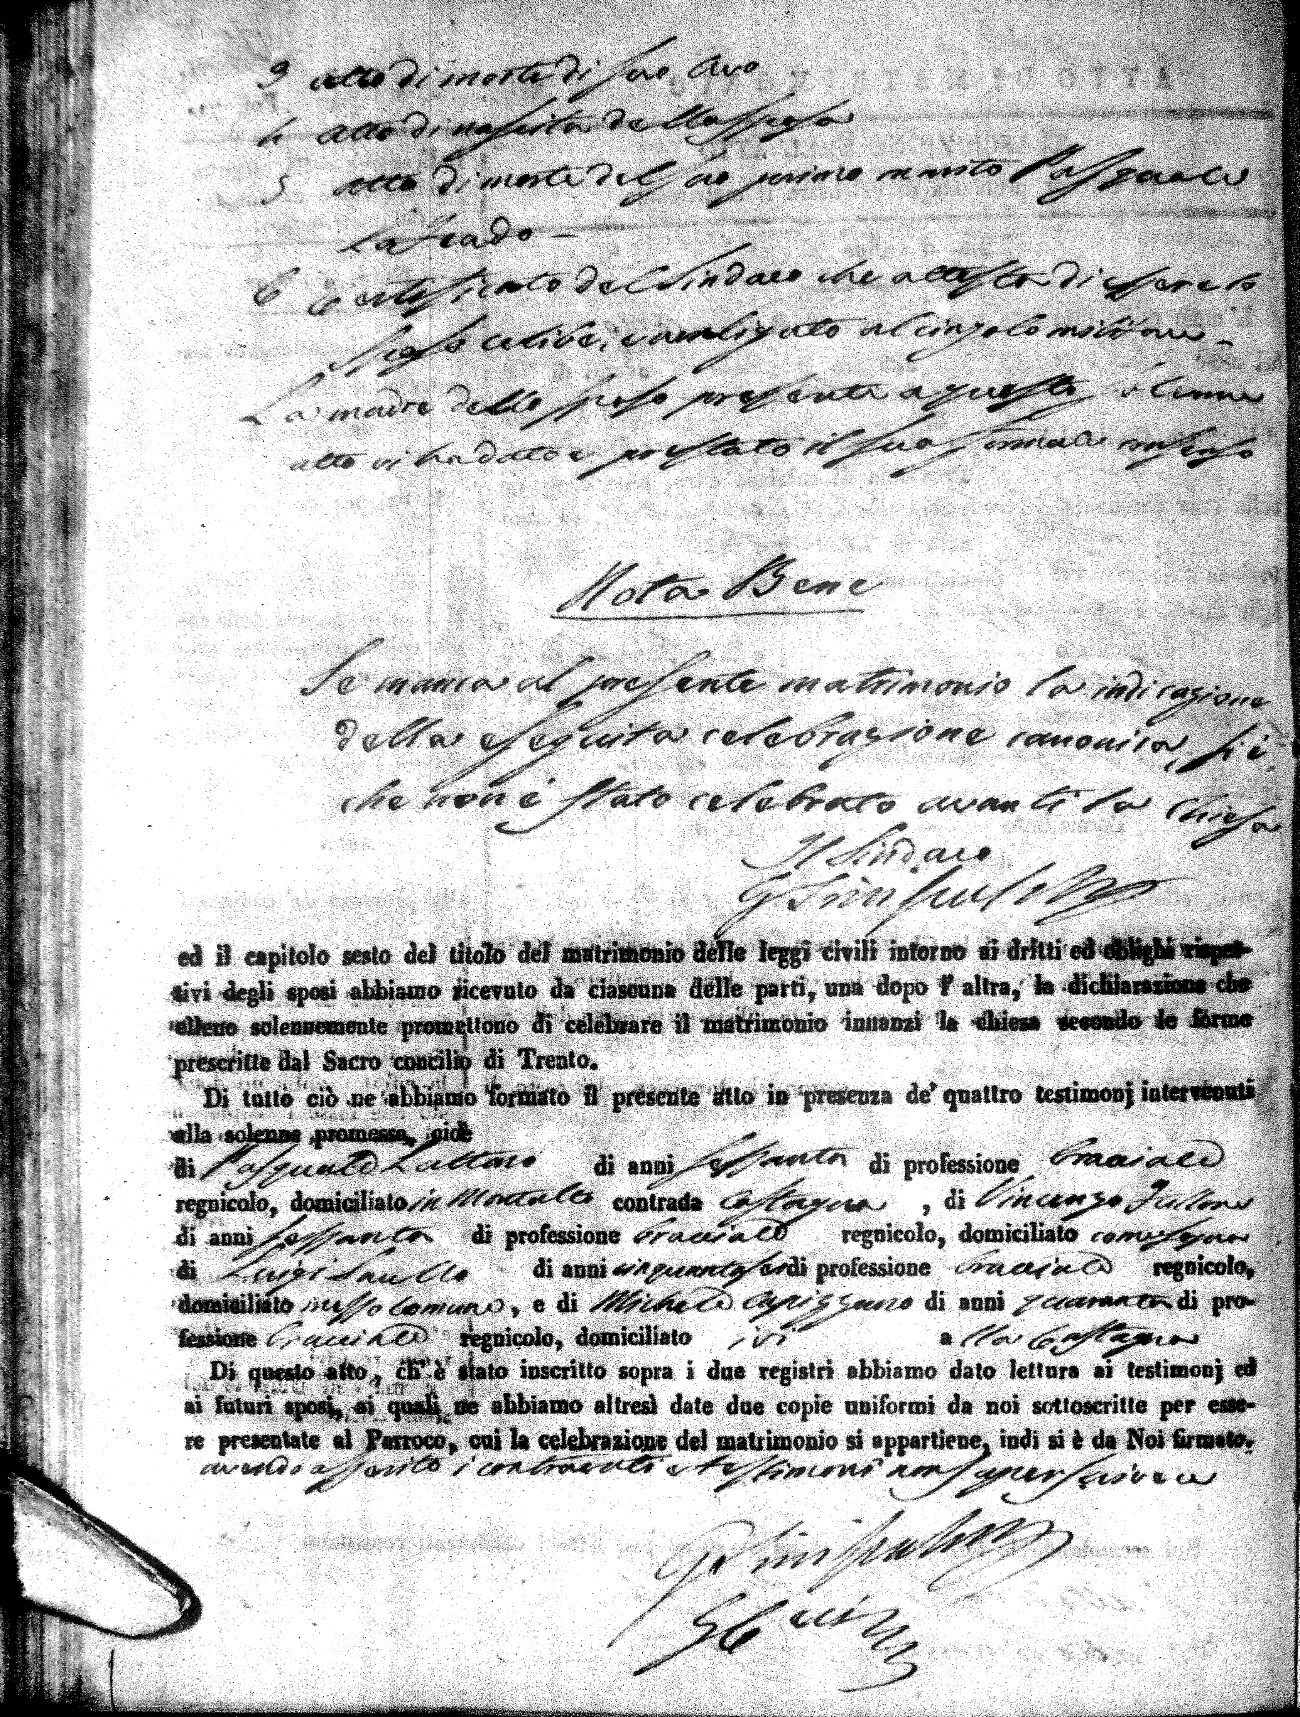 3 atto di morte di suo Avo
4 atto di nascita della sposa
5 atto di morte del suo primo marito Pasquale
6 Certificato del Sindaco che attesta di essere lo
sposo celibe, e
La madre dello sposo presente a questo
atto vi ha dato e prestato il suo consenso
Nota Bene
Se manca al presente matrimonio la indicazione
della eseguita celebrazione canonica, si è
che non è stato celebrato avanti la Chiesa
Il Sindaco
ed il capitolo sesto del titolo del matrimonio delle leggi civili intorno ai dritti ed oblighi rispet-
tivi degli sposi abbiamo ricevuto da ciascuna delle parti, una dopo l' altra, la dichiarazione che
elleno solennemente promettono di celebrare il matrimonio innanzi la chiesa secondo le forme
prescritte dal Sacro concilio di Trento.
Di tutto ciò ne abbiamo formato il presente atto in presenza de' quattro testimonj intervenuti
alla solenne promessa, cioè
di Pasquale Lattaro di anni sessanta di professione bracciale
regnicolo, domiciliato in Montalto contrada Castagna, di Vincenzo
di anni sessanta di professione bracciale regnicolo, domiciliato come sopra
di Luigi Saullo di anni cinquantasei di professione bracciale regnicolo,
domiciliato nesso Comune, e di Michele Capizzano di anni quaranta di pro-
fessione bracciale regnicolo, domiciliato ivi alla Castagna
Di questo atto, ch' è stato inscritto sopra i due registri abbiamo dato lettura ai testimonj ed
ai futuri sposi, ai quali ne abbiamo altresì date due copie uniformi da noi sottoscritte per esse-
re presentate al Parroco, cui la celebrazione del matrimonio si appartiene, indi si è da Noi firmato.
avendo asserito i contraenti e testimoni non saper scrivere